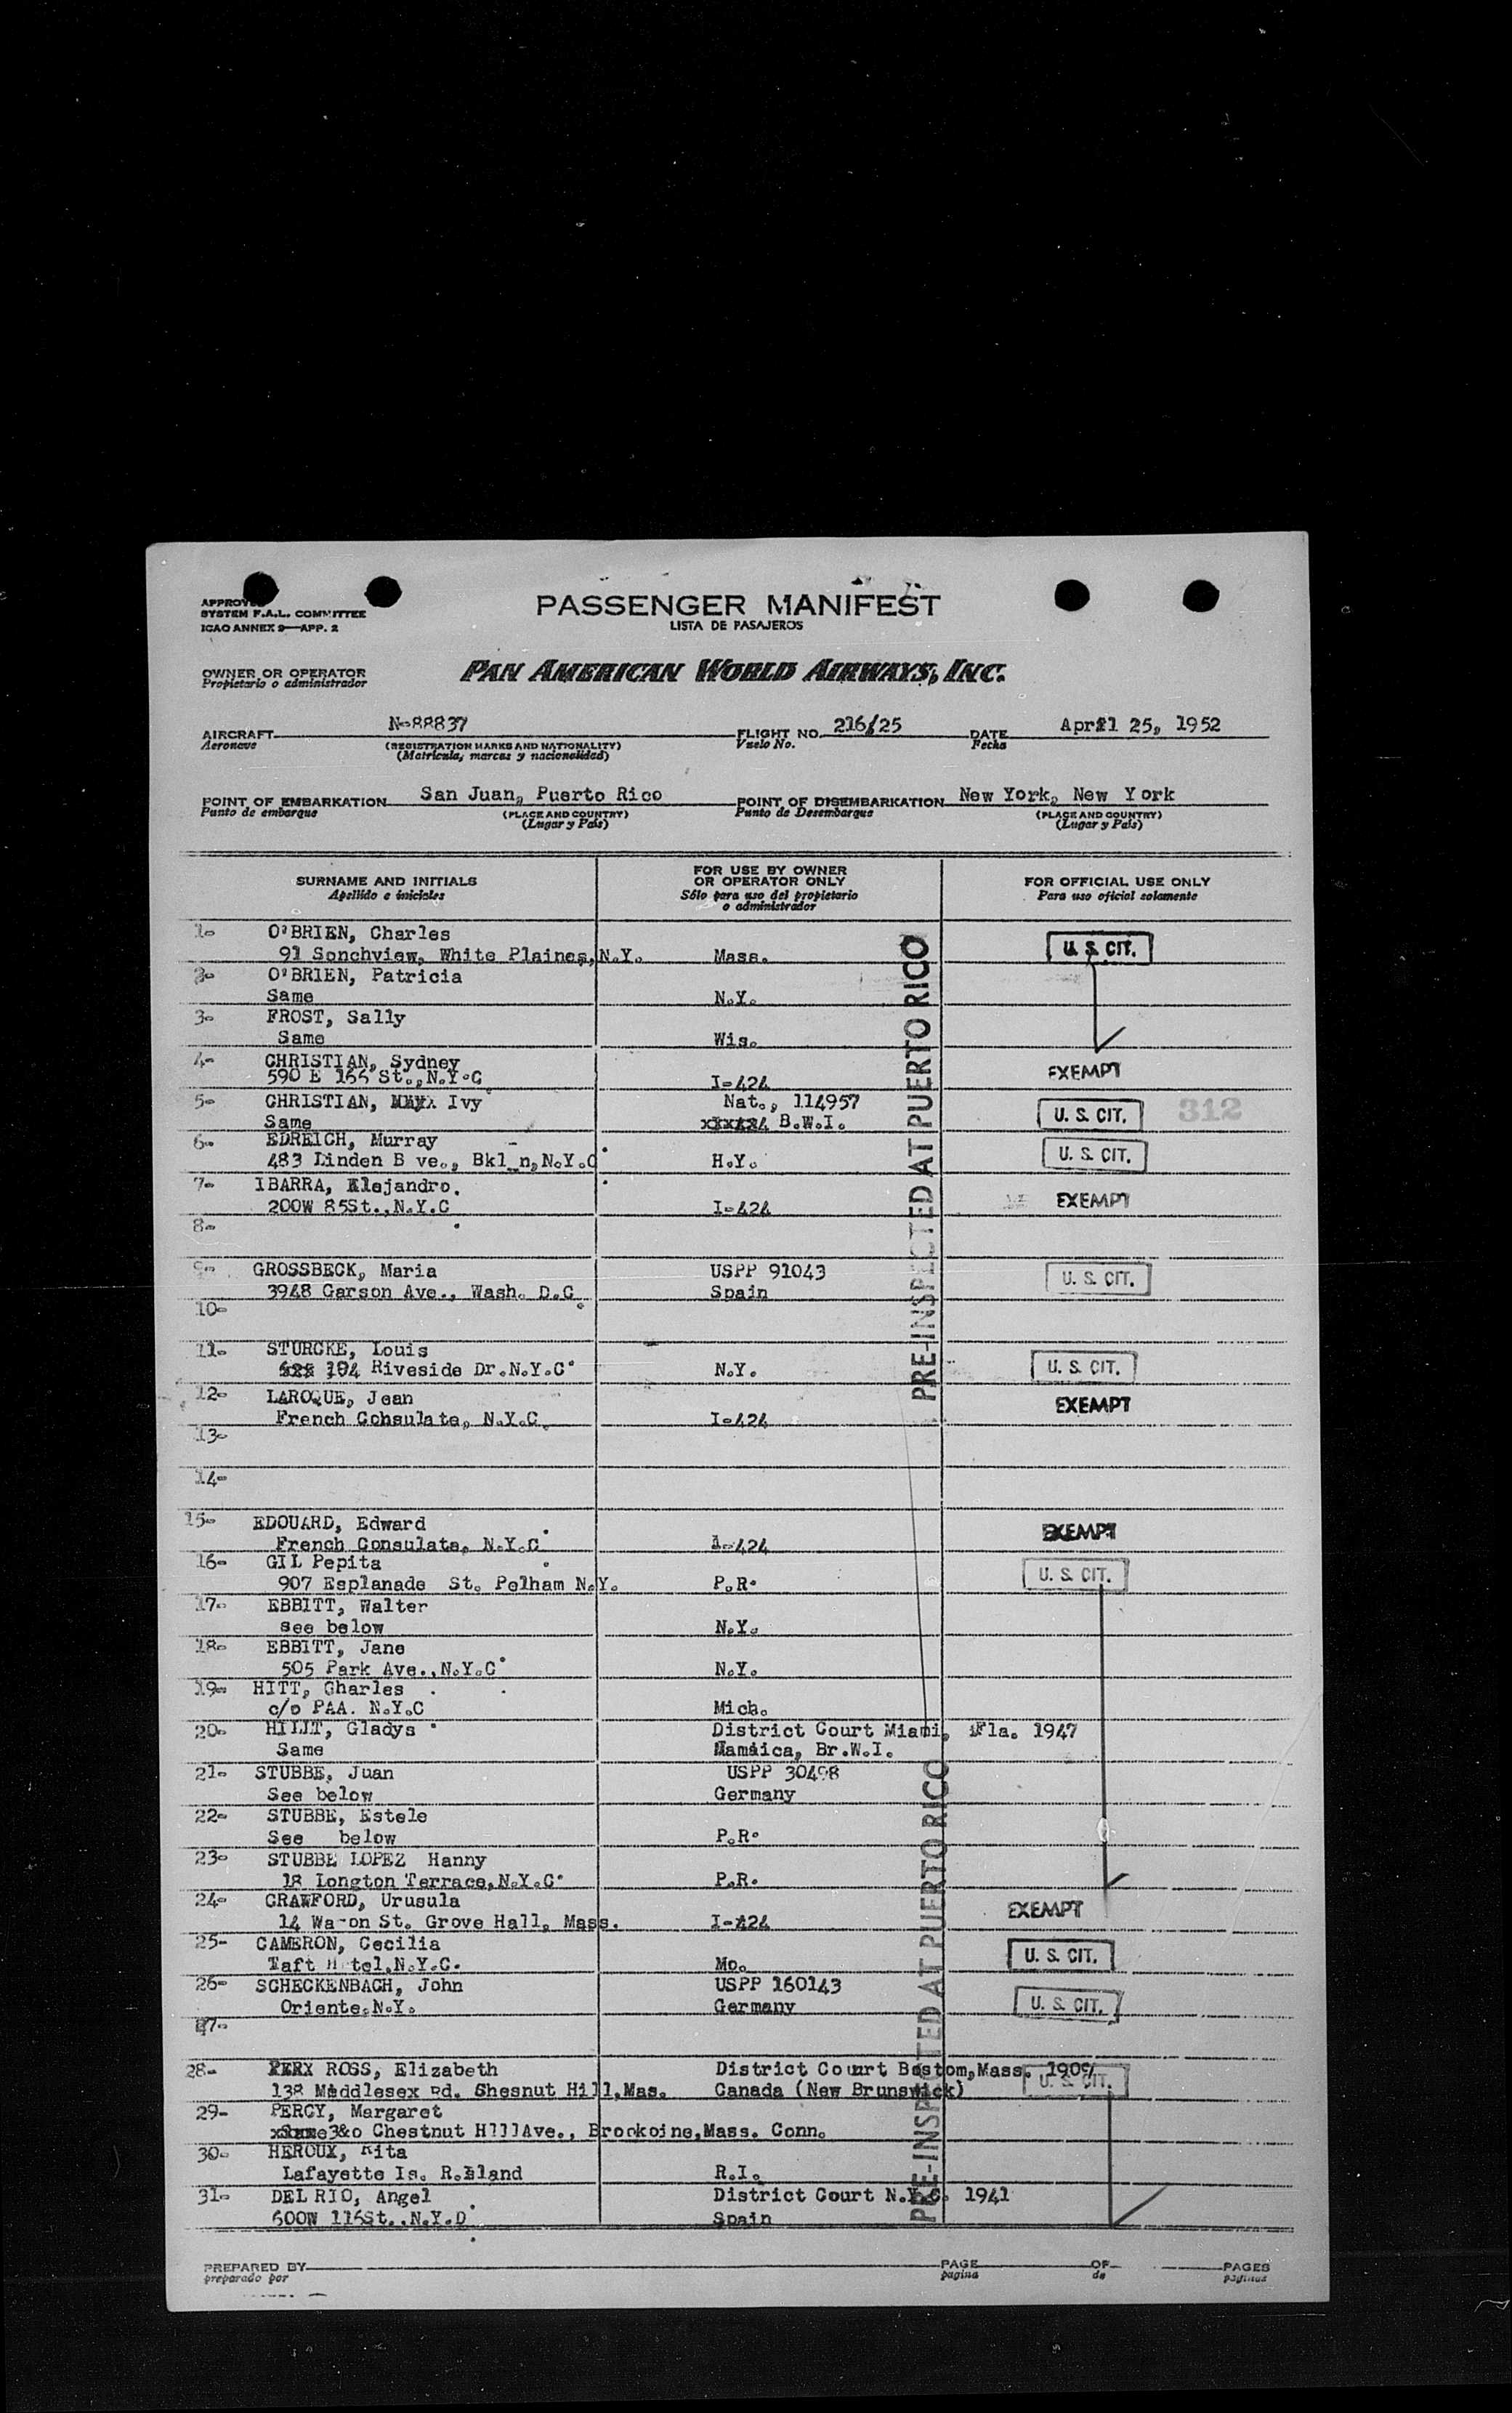 APPROVED
SYSTEM F.A.L. COMMITTEE
ICAO ANNEX 9—APP. 2
PASSENGER MANIFEST
LISTA DE PASAJEROS
OWNER OR OPERATOR
Propietario o administrador
PAN AMERICAN WORLD AIRWAYS, INC.
AIRCRAFT N-88837 FLIGHT NO. 216/25 DATE April 25, 1952
Aeronave (REGISTRATION MARKS AND NATIONALITY) Vuelo No. Fecha
(Matricula, marcas y nacionalidad)
POINT OF EMBARKATION San Juan, Puerto Rico POINT OF DISEMBARKATION New York, New York
Punto de embarque (PLACE AND COUNTRY) Punto de Desembarque (PLACE AND COUNTRY)
(Lugar y País) (Lugar y País)
SURNAME AND INITIALS FOR USE BY OWNER OR OPERATOR ONLY FOR OFFICIAL USE ONLY
Apellido e iniciales Sólo para uso del propietario o administrador Para uso oficial solamente
1- O'BRIEN, Charles
91 Sonchview, White Plaines, N.Y. Mass. U. S. CIT.
2- O'BRIEN, Patricia
Same N.Y.
3- FROST, Sally
Same Wis.
4- CHRISTIAN, Sydney EXEMPT
590 E 166 St., N.Y.C I-424
5- CHRISTIAN, Ivy Nat., 114957
Same B.W.I. U. S. CIT. 312
6- EDREICH, Murray
483 Linden B ve., Bkl n, N.Y.C H.Y. U. S. CIT.
7- IBARRA, Alejandro.
200W 85St., N.Y.C I-424 EXEMPT
8-
9- GROSSBECK, Maria USPP 91043
3948 Garson Ave., Wash. D.C. Spain U. S. CIT.
10-
11- STURCKE, Louis
194 Riveside Dr. N.Y.C N.Y. U. S. CIT.
12- LAROQUE, Jean EXEMPT
French Cohsulate, N.Y.C. I-424
13-
14-
15- EDOUARD, Edward EXEMPT
French Consulate, N.Y.C I-424
16- GIL Pepita
907 Esplanade St. Pelham N.Y. P.R. U. S. CIT.
17- EBBITT, Walter
see below N.Y.
18- EBBITT, Jane
505 Park Ave., N.Y.C N.Y.
19- HITT, Charles
c/o PAA. N.Y.C Mich.
20- HILTT, Gladys District Court Miami, Fla. 1947
Same Jamaica, Br.W.I.
21- STUBBE, Juan USPP 30498
See below Germany
22- STUBBE, Estele
See below P.R.
23- STUBBE LOPEZ Hanny
18 Longton Terrace, N.Y.C P.R.
24- CRAWFORD, Urusula EXEMPT
14 Wa-on St. Grove Hall, Mass. I-424
25- CAMERON, Cecilia
Taft H tel, N.Y.C. Mo. U. S. CIT.
26- SCHECKENBACH, John USPP 160143
Oriente, N.Y. Germany U. S. CIT.
27-
28- ROSS, Elizabeth District Court Bostom, Mass. 1909
138 Maddlesex Rd. Shesnut Hill, Mas. Canada (New Brunswick) U. S. CIT.
29- PERCY, Margaret
3&0 Chestnut Hill Ave., Brookoine, Mass. Conn.
30- HEROUX, Rita
Lafayette Is. R.Island R.I.
31- DEL RIO, Angel District Court N.Y.C. 1941
600W 116St., N.Y.D Spain
PRE-INSPECTED AT PUERTO RICO
PRE-INSPECTED AT PUERTO RICO
PREPARED BY PAGE OF PAGES
preparado por pagina de páginas